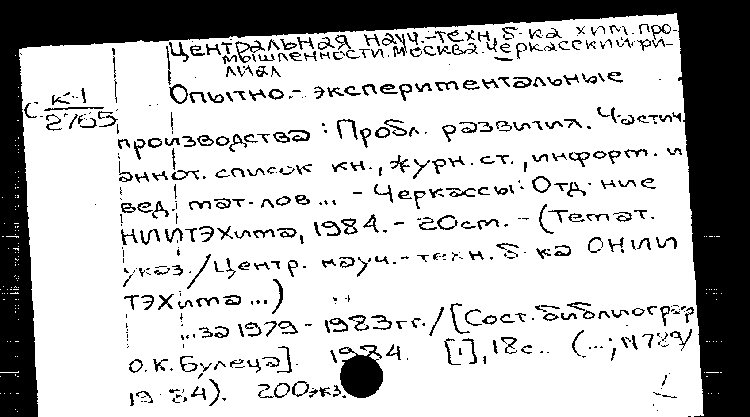 Центральная науч.-техн. б-ка хим. про-
мышленности. Москва. Черкасский фи-
лиал
С К-1
2765
Опытно-экспериментальные
производства: Пробл. развития. Частич.
аннот. список кн., журн. ст., информ. и
вед. мат-лов... - Черкассы: Отд-ние
НИИТЭХима, 1984. - 20см. - (Темат.
указ. / Центр. науч.-техн. б-ка ОНИИ
ТЭХима...)
...за 1979 - 1983 гг. / [Сост. библиограф
О.К. Булеца]. 1984. [1], 18с.. (...; N 789/
1984). 200экз.